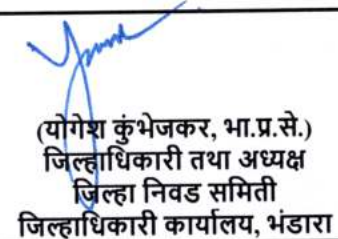 (योगेश कुंभेजकर, भा.प्र.से.)
जिल्हाधिकारी तथा अध्यक्ष
जिल्हा निवड समिती
जिल्हाधिकारी कार्यालय, भंडारा